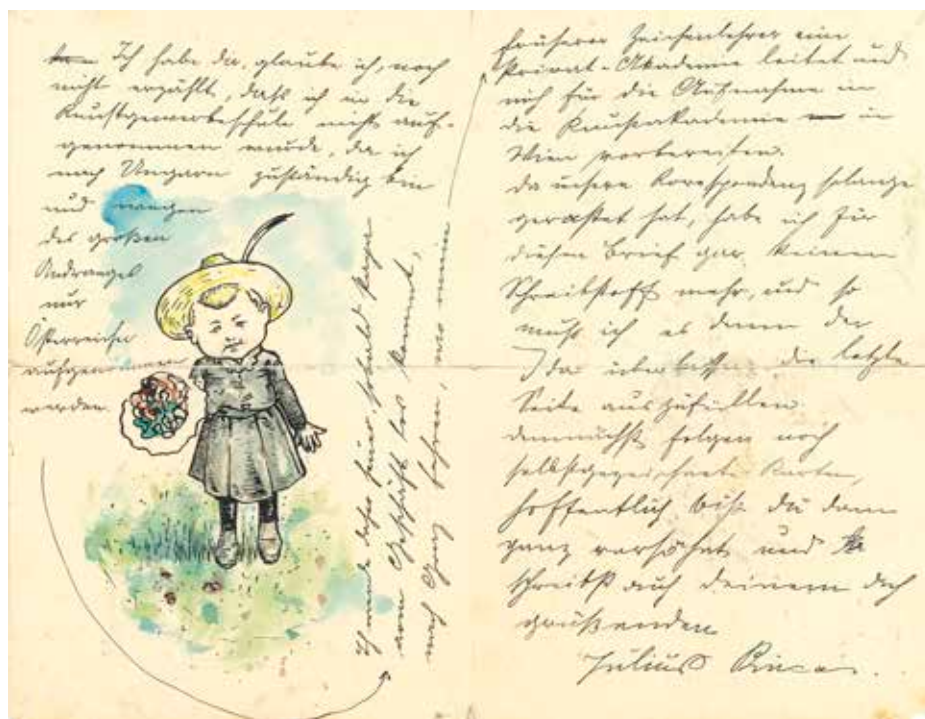 Ich habe dir, glaube ich, noch
nicht erzählt, daß ich in die
Kunstgewerbeschule nicht auf-
genommen wurde, da ich
nach Ungarn zuständig bin
und wegen
des großen
Andranges
nur
Österreicher
aufgenommen
werden.
Ich werde daher heuer, sobald Papa
vom Geschäft los kommt,
nach Graz fahren, wo mein
früherer Zeichenlehrer eine
Privat-Akademie leitet und
mich für die Aufnahme in
die Kunstakademie in
Wien vorbereiten.
Da unsere Korespondenz solange
gerastet hat, habe ich für
diesen Brief gar keinen
Schreibstoff mehr, und so
muß ich es denn der
Ida überlassen die letzte
Seite auszufüllen.
Demnächst folgen noch
selbstgezeichnete Karten,
hoffentlich bist du dann
ganz versöhnt und
schreibst auch deinem dich
grüßenden
Julius